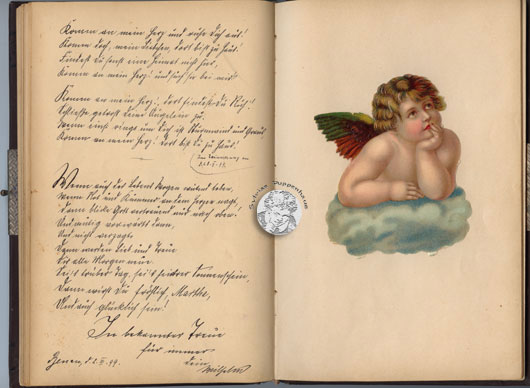 Komm an mein Herz und ruhe Dich aus!
Komm doch, mein Liebchen, dort bist zu Haus!
Findest Du sonst eine Heimat nicht hier,
Komm an mein Herz! und such sie bei mir!
Komm an mein Herz! dort findest Du Ruh!
Schließe getrost Deine Äuglein zu,
Wenn einst rings um Dich ist Sturmwind und Graus
Komm an mein Herz! dort bist Du zu Haus!
Zur Erinnerung an
Wenn auch des Lebens Wogen wütend toben,
Wenn Not und Kummer an dem Herzen nagt,
Dann blicke Gott vertrauend nur nach oben!
Und mutig vorwärts dann,
Und nicht verzagt.
Dann werden Lieb und Treue
Dir alle Morgen neue
Sei's trüber Tag, sei's heitrer Sonnenschein,
Dann wirst Du fröhlich, Martha,
Und auch glücklich sein!
In bekannter Treue
für immer
Dein
Wilhelm
99.